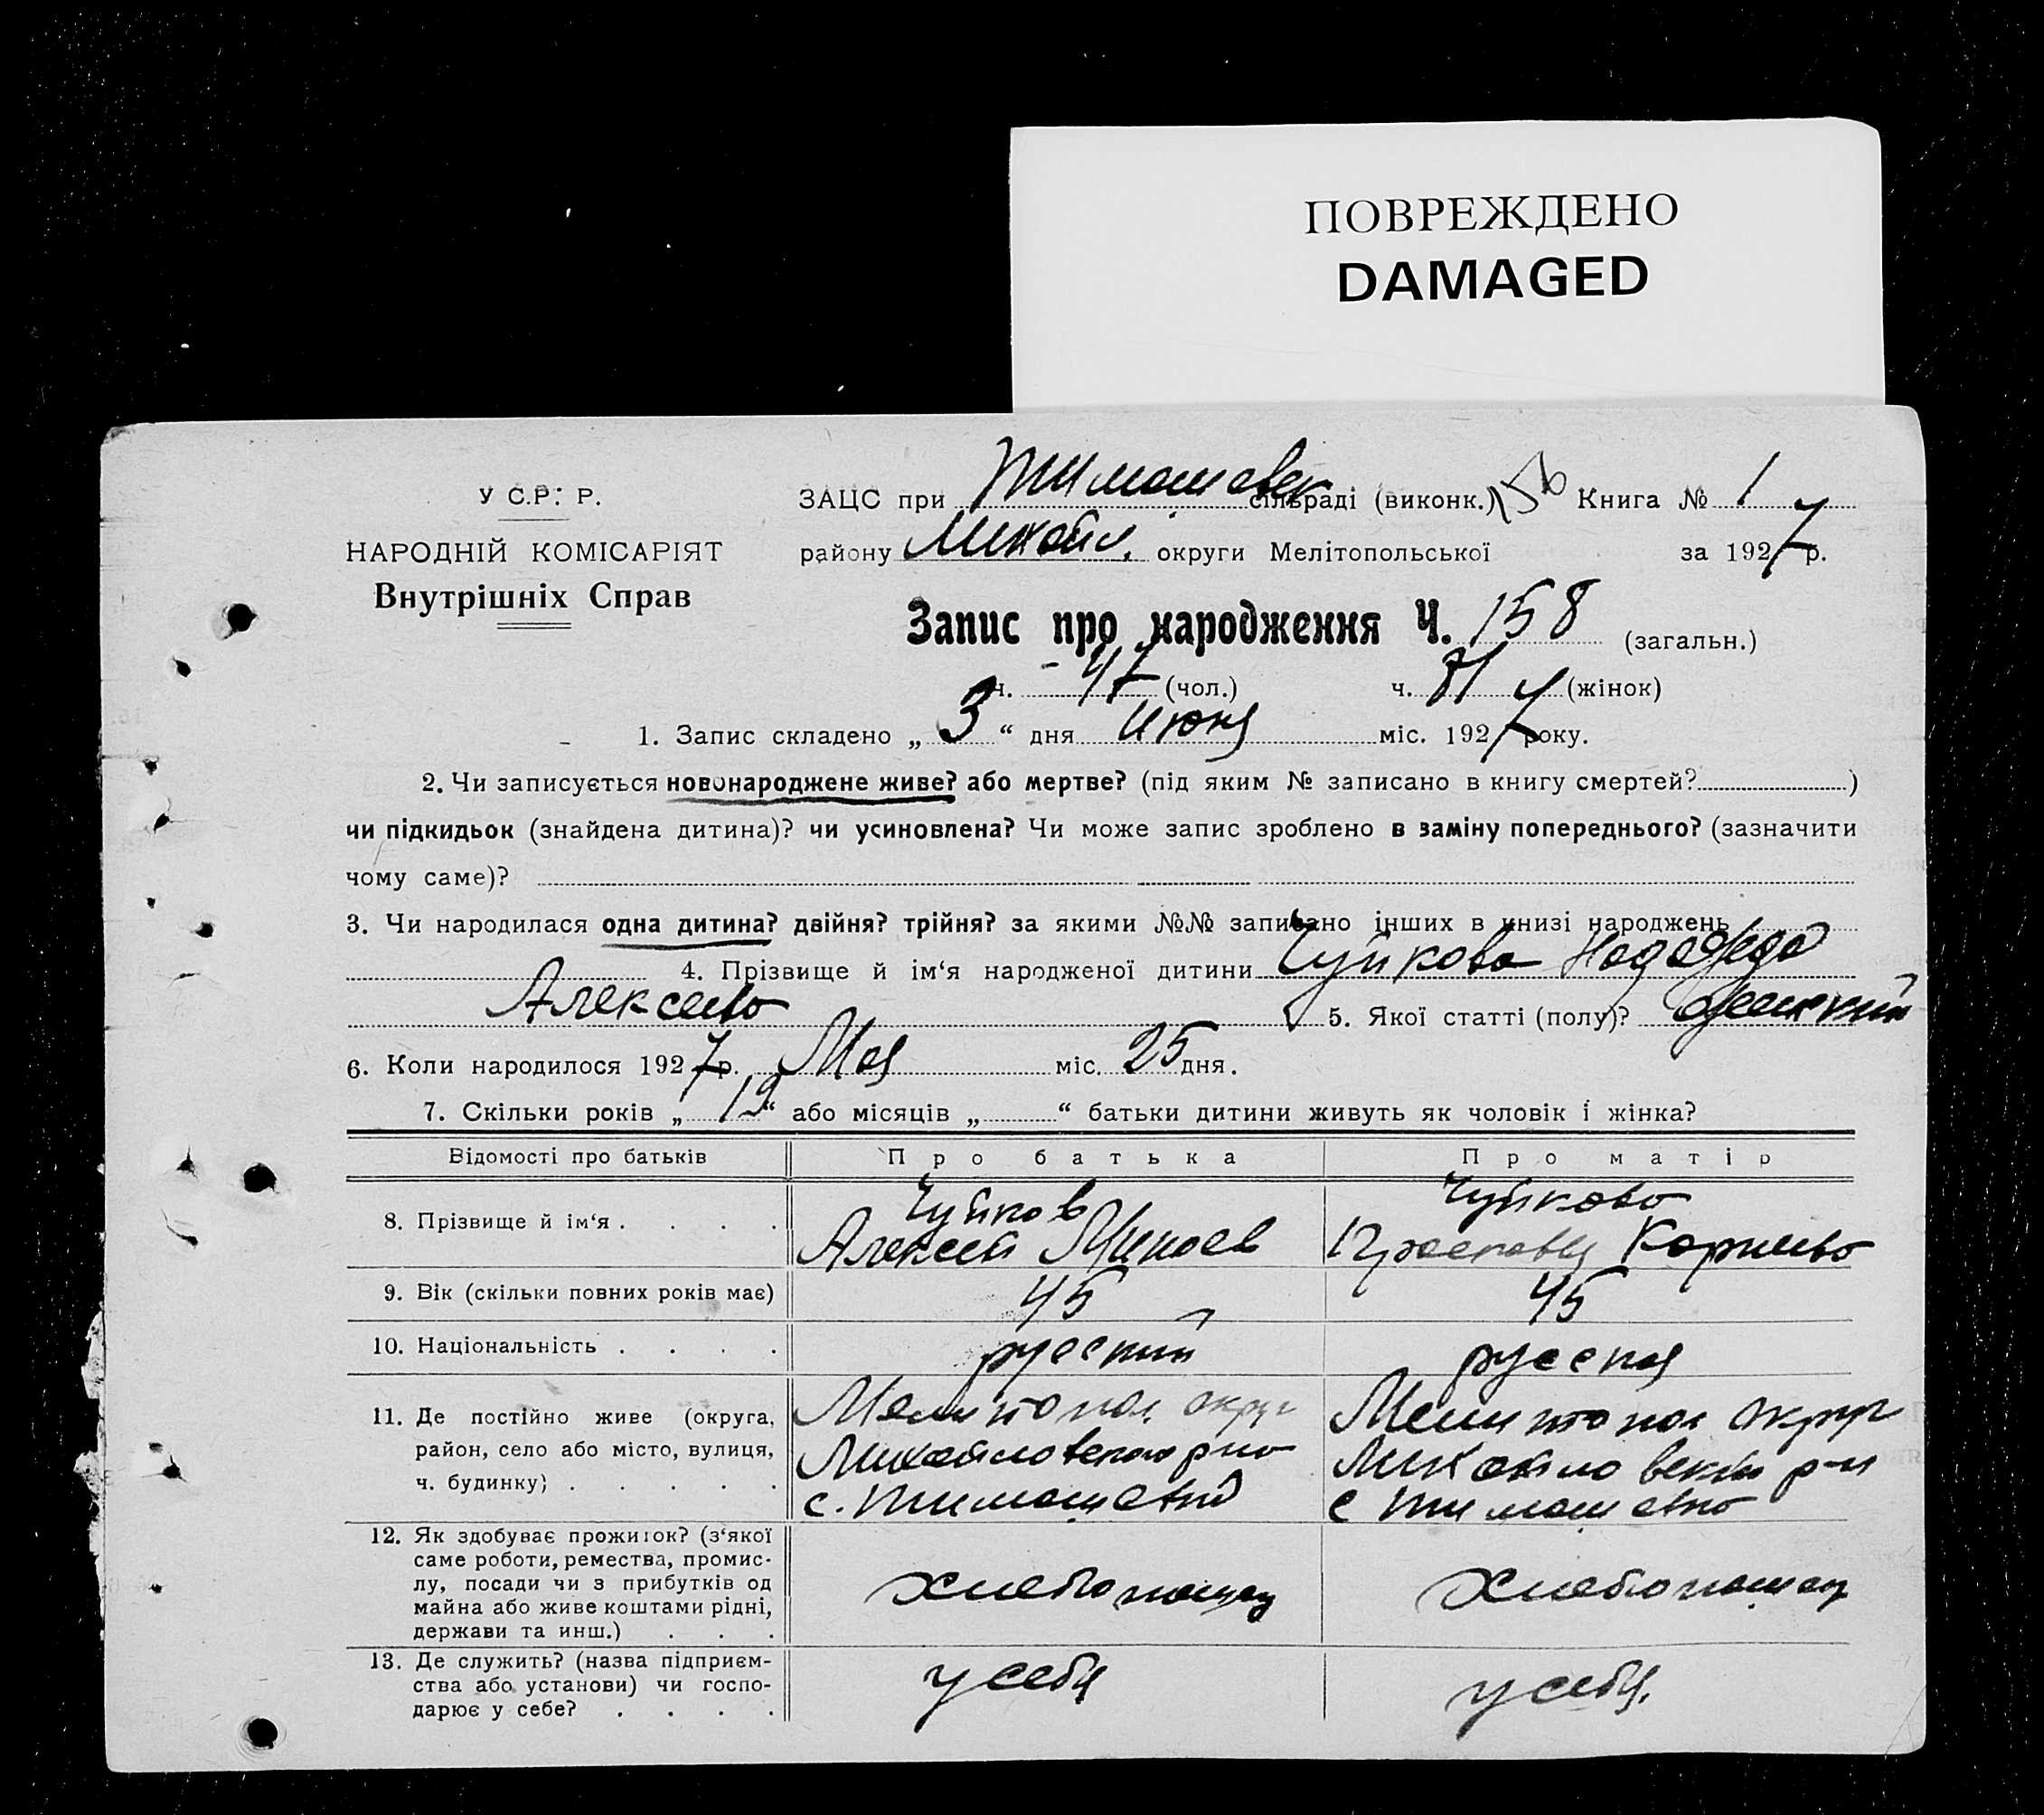 ПОВРЕЖДЕНО
DAMAGED
У С.Р. Р.
НАРОДНІЙ КОМІСАРІЯТ
Внутрішніх Справ
ЗАЦС при Тимошовск сільраді (виконк.) Книга № 1
району Михайл. округи Мелітопольської за 1927 р.
Запис про народження Ч. 158 (загальн.)
ч. (чол.) ч. (жінок)
1. Запис складено „ 3 “ дня Июня міс. 1927 року.
2. Чи записується новонароджене живе? або мертве? (під яким № записано в книгу смертей? )
чи підкидьок (знайдена дитина)? чи усиновлена? Чи може запис зроблено в заміну попереднього? (зазначити
чому саме)?
3. Чи народилася одна дитина? двійня? трійня? за якими №№ записано інших в книзі народжень
4. Прізвище й ім‘я народженої дитини Чуйкова Надежда
Алексеево 5. Якої статті (полу)? женский
6. Коли народилося 1927 р. Мая міс. 25 дня.
7. Скільки років „ 19 “ або місяців „ “ батьки дитини живуть як чоловік і жінка?
Відомості про батьків Про батька Про матір
8. Прізвище й ім‘я . . . . Чуйков Алексей Минаев Чуйкова Прасковия Корнеево
9. Вік (скільки повних років має) 45 45
10. Національність . . . . русский русская
11. Де постійно живе (округа, район, село або місто, вулиця, ч. будинку) . . . . . Мелитопол округ Михайловского р-но с. Тимошовка Мелитопол округ Михайловски р-н с Тимошовка
12. Як здобуває прожиток? (з‘якої саме роботи, ремества, промислу, посади чи з прибутків од майна або живе коштами рідні, держави та инш.) . . . хлебопашец хлебопашец
13. Де служить? (назва підприємства або установи) чи господарює у себе? . . . . у себя у себя.